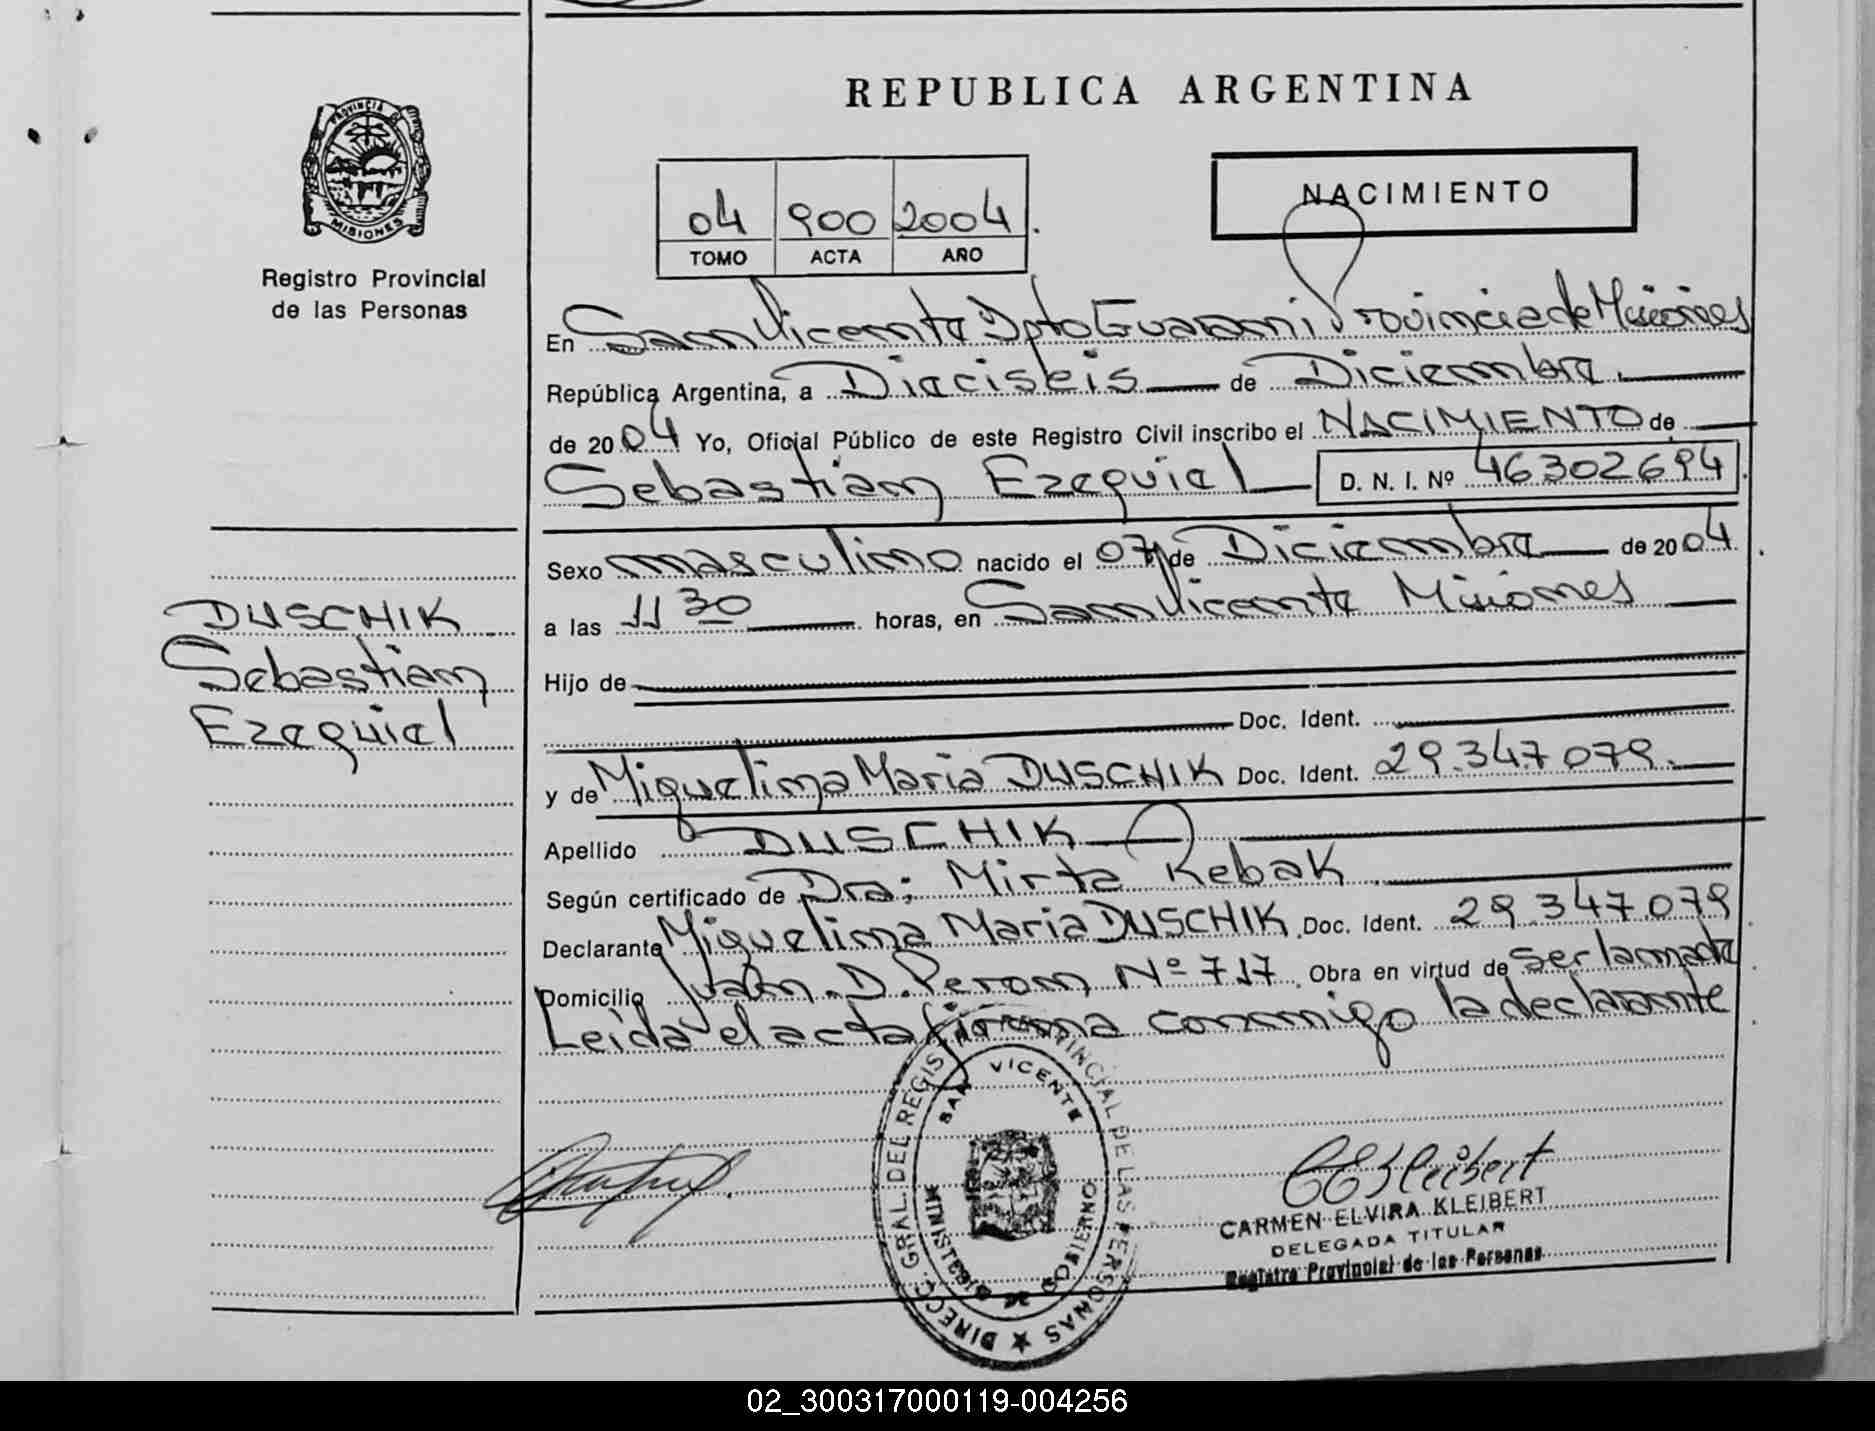 REPUBLICA ARGENTINA
PROVINCIA DE
MISIONES
Registro Provincial
de las Personas
04 900 2004
TOMO ACTA AÑO
NACIMIENTO
En San Vicente Dpto Guarani Provincia de Misiones
República Argentina, a Dieciseis de Diciembre
de 2004 Yo, Oficial Público de este Registro Civil inscribo el NACIMIENTO de
Sebastian Ezequiel D. N. I. Nº 46302694
Sexo masculino nacido el 07 de Diciembre de 2004
a las 11 30 horas, en San Vicente Misiones
Hijo de
Doc. Ident.
y de Miguelina Maria DUSCHIK Doc. Ident. 29.347.079.
Apellido DUSCHIK
Según certificado de Dra; Mirta Rebak
Declarante Miguelina Maria DUSCHIK Doc. Ident. 29.347.079
Domicilio Juan. D. Peron Nº 717 Obra en virtud de ser la madre
Leida el acta firma conmigo la declarante
DUSCHIK
Sebastian
Ezequiel
DIRECC. GRAL. DEL REGISTRO PROVINCIAL DE LAS PERSONAS
SAN VICENTE
MINISTERIO DE GOBIERNO
CEKleibert
CARMEN ELVIRA KLEIBERT
DELEGADA TITULAR
Registro Provincial de las Personas
02_300317000119-004256